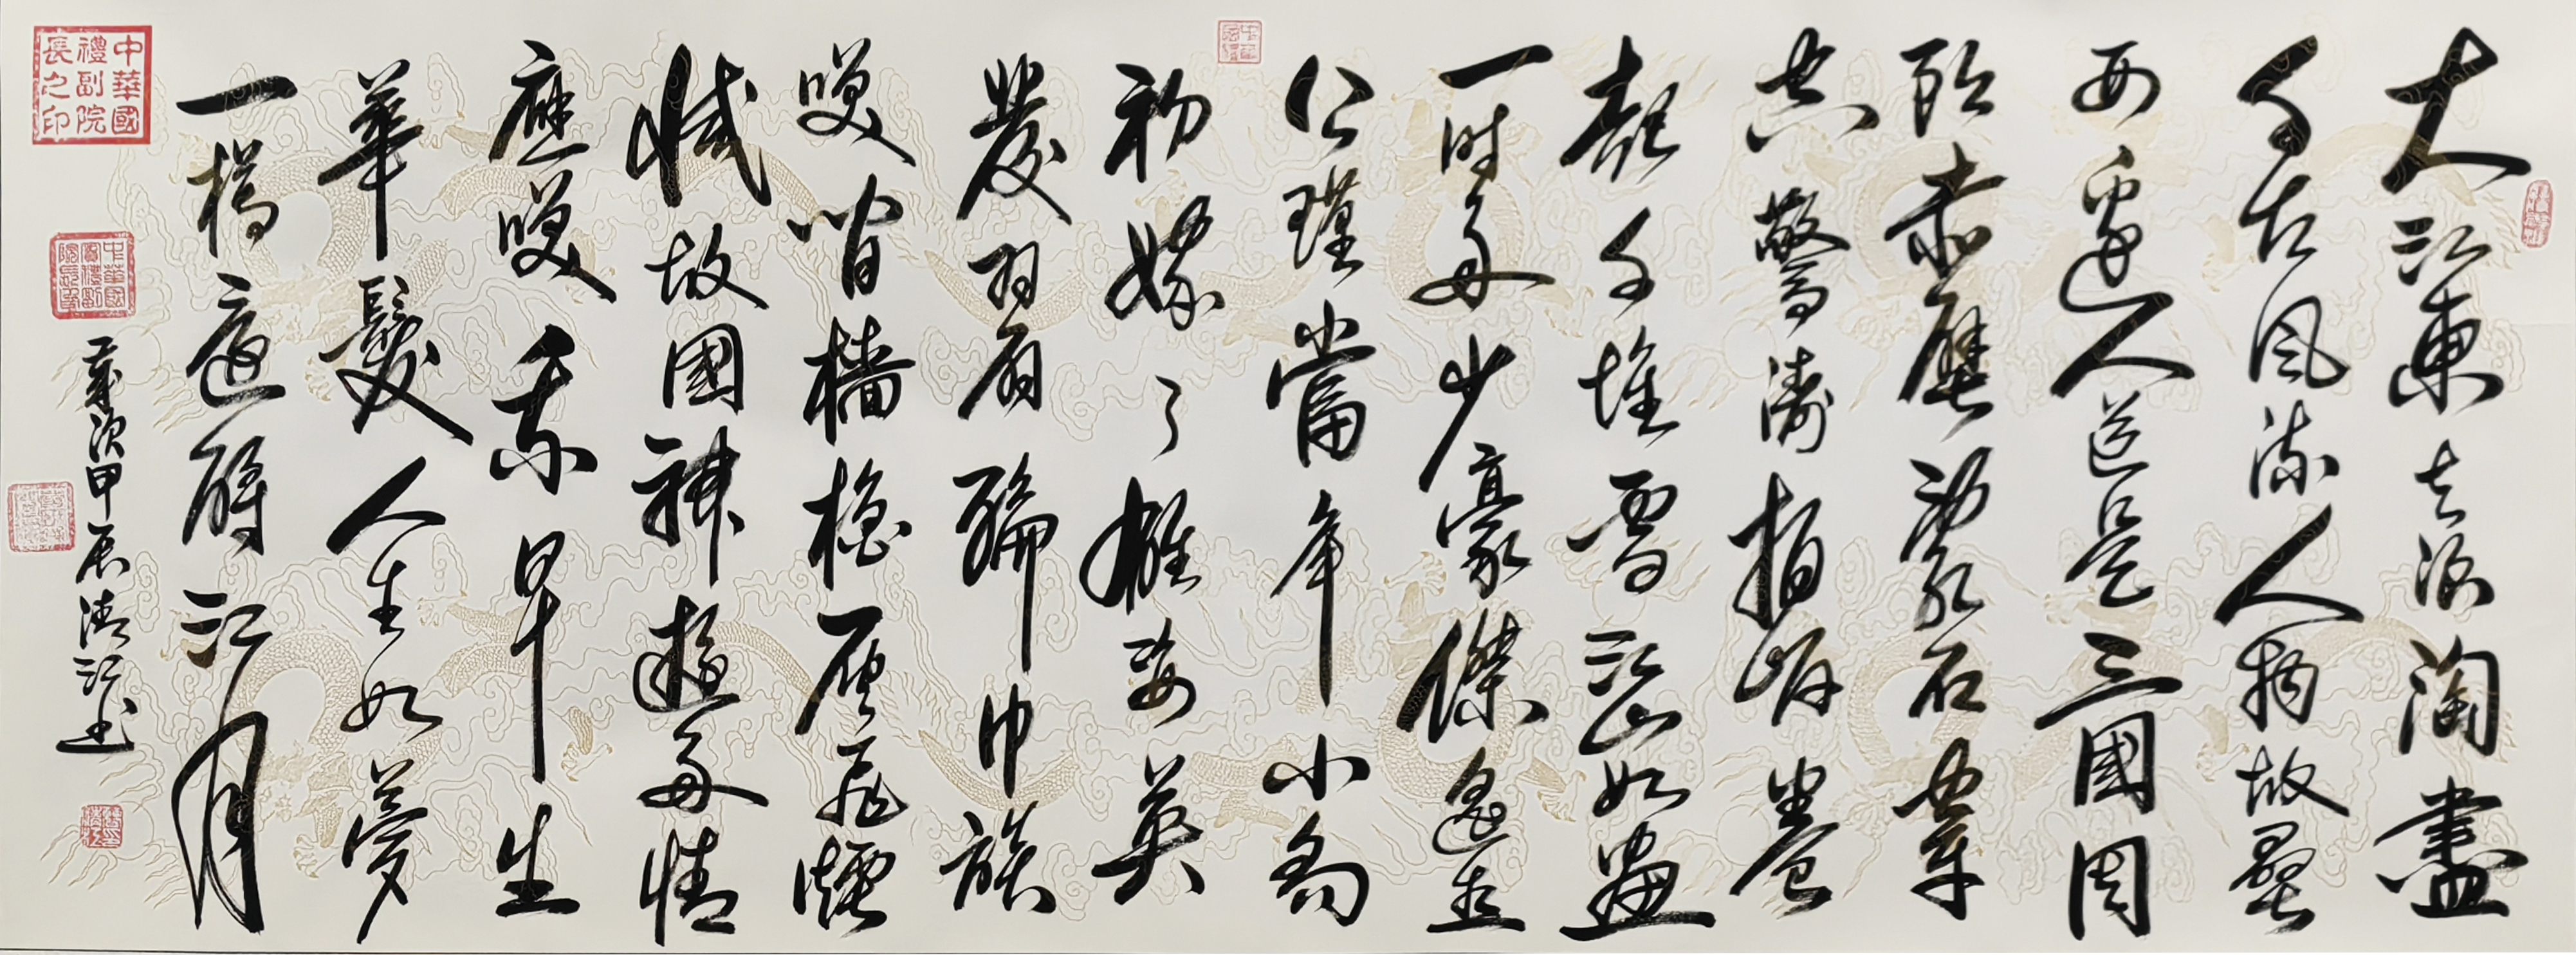 大江東去浪淘盡
千古風流人物故壘
西邊人道是三國周
郎赤壁亂石穿
空驚濤拍岸卷
起千堆雪江山如畫
一时多少豪傑遙想
公瑾當年小喬
初嫁了雄姿英
發羽扇綸巾談
笑間檣櫓灰飛煙
滅故國神遊多情
應笑我早生
華髮人生如夢
一樽還酹江月
歲次甲辰江书
中華國禮副院長之印